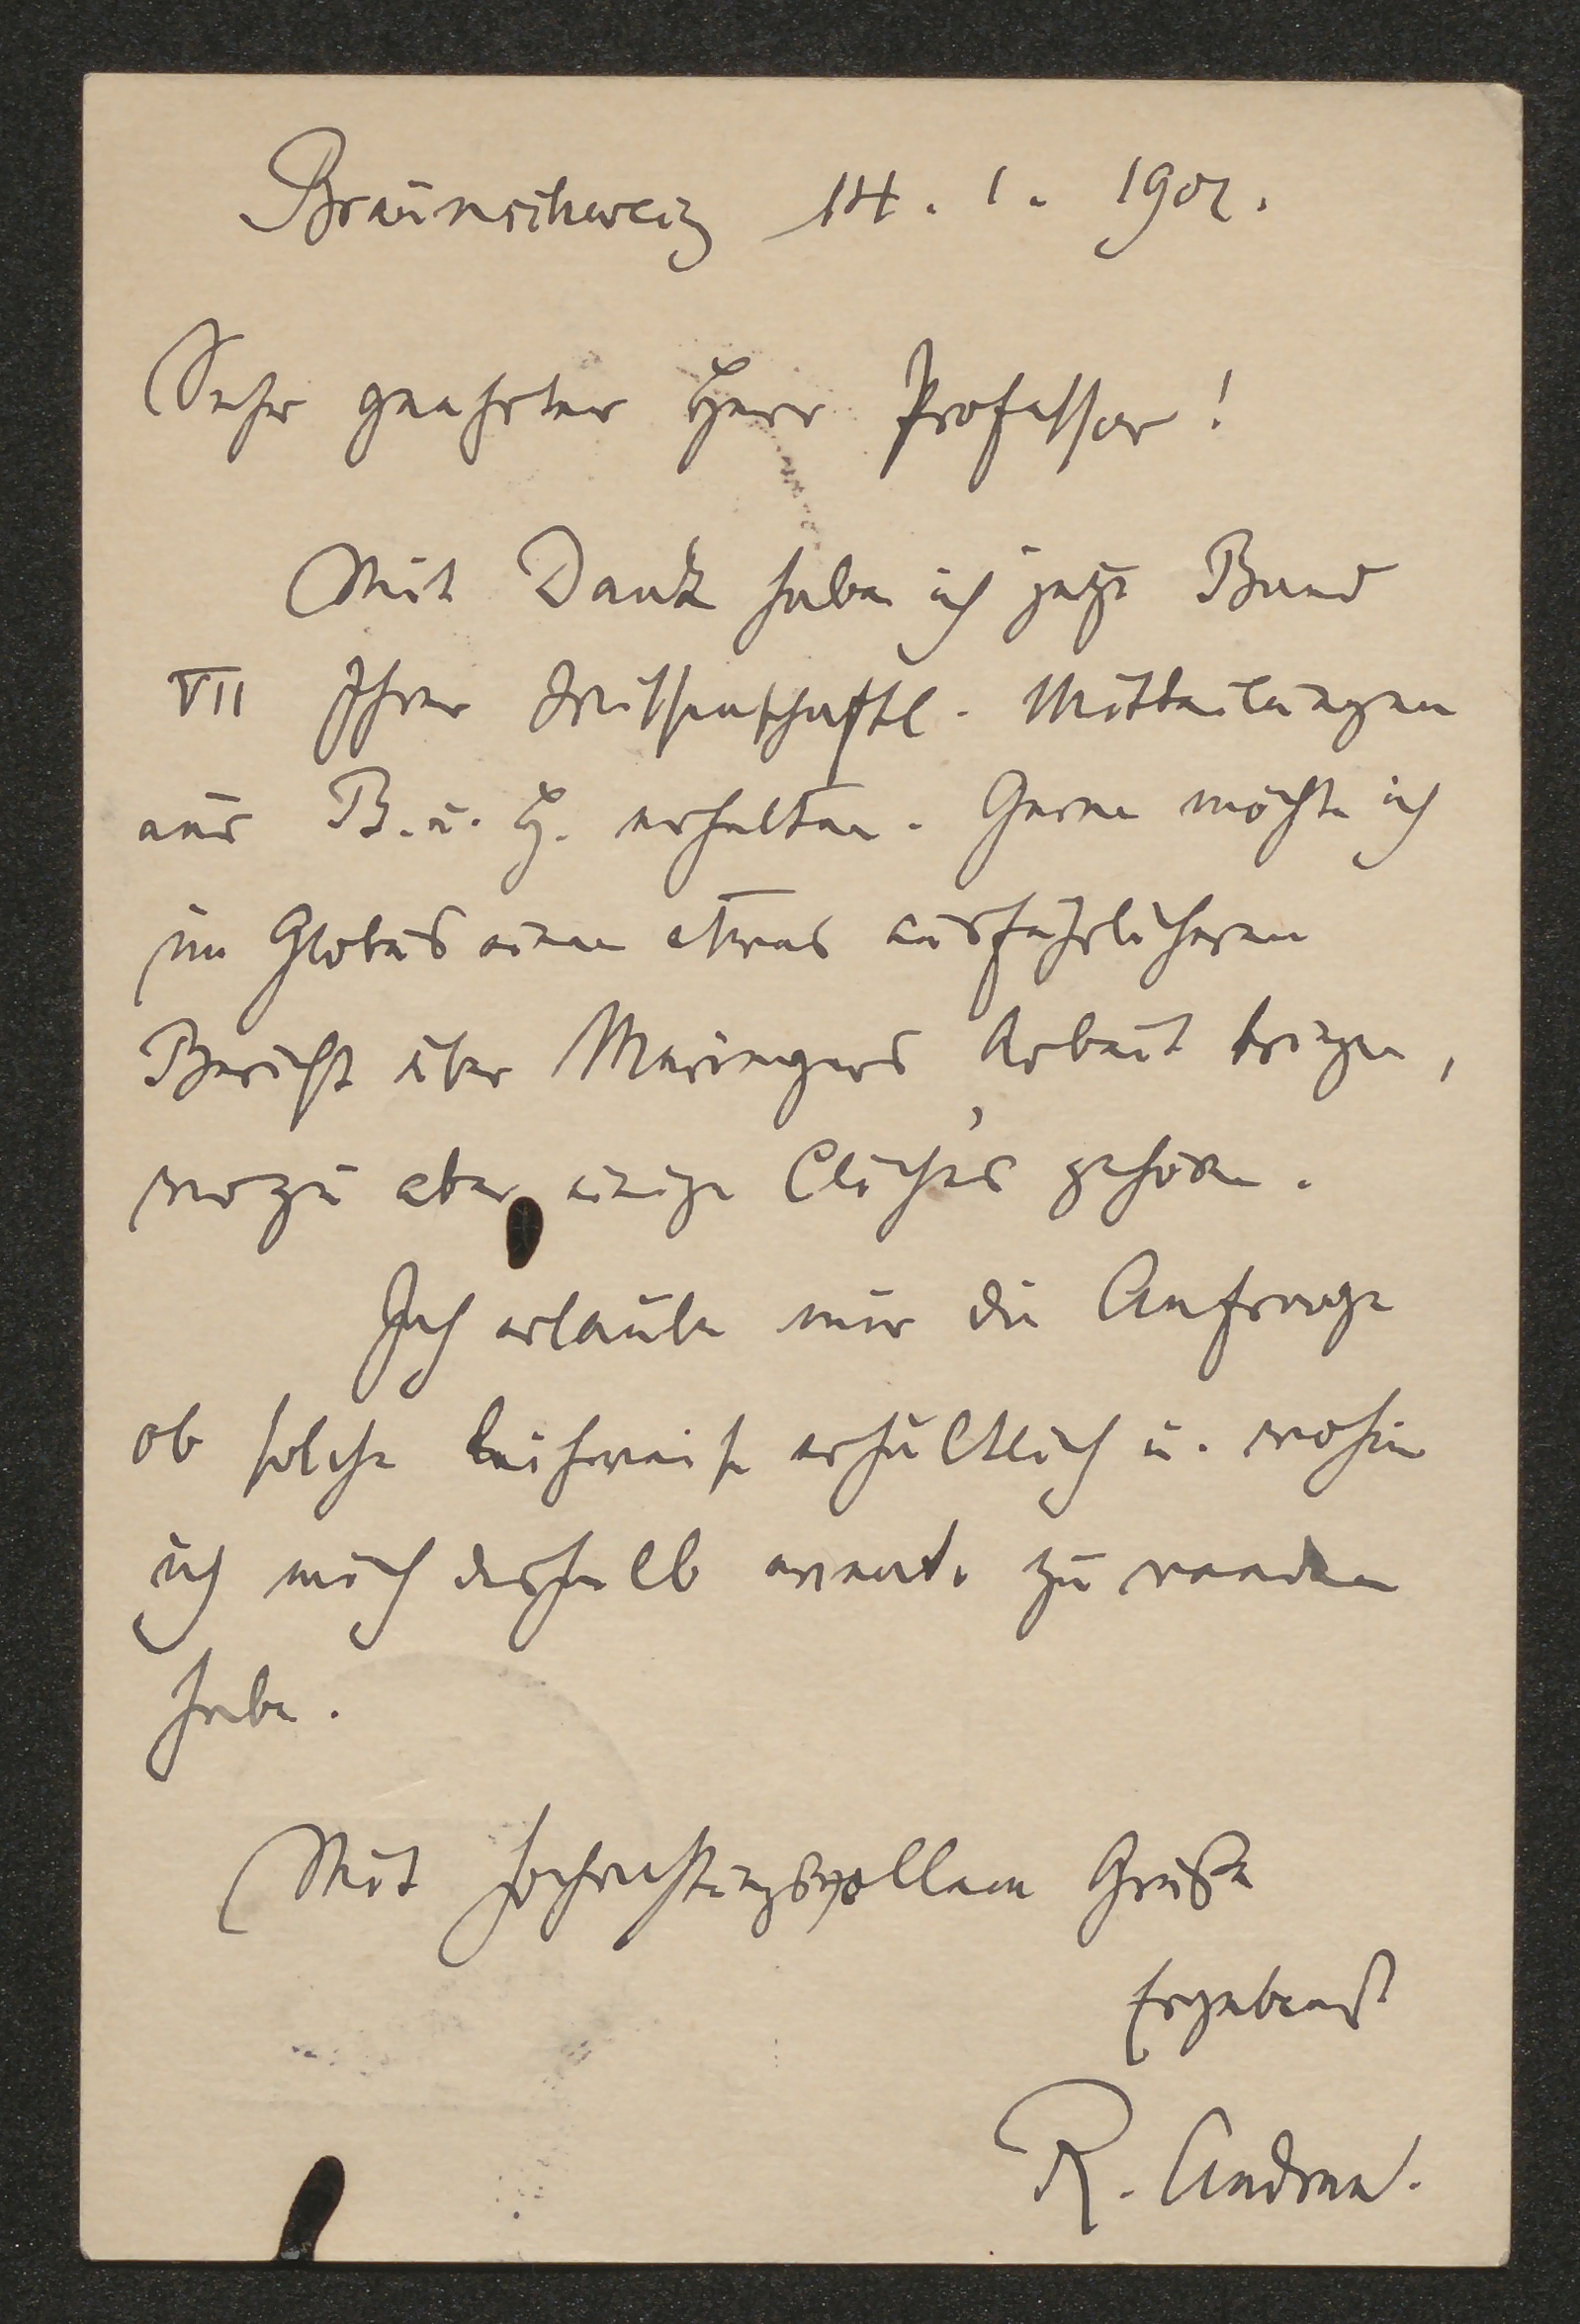 Braunschweig 14. 1. 1902.
Sehr geehrter Herr Professor!
Mit Dank habe ich jetzt Band
VII Ihrer Wissenschaftl. Mitteilungen
aus B. u. H. erhalten. Gerne möchte ich
im Globus einen etwas ausführlicheren
Bericht über Meringers Arbeit bringen,
wozu aber einige Clichés gehören.
Ich erlaube mir die Anfrage
ob solche leihweise erhältlich u. wohin
ich mich deshalb event. zu wenden
habe.
Mit hochachtungsvollem Gruße
Ergebenst
R. Andree.